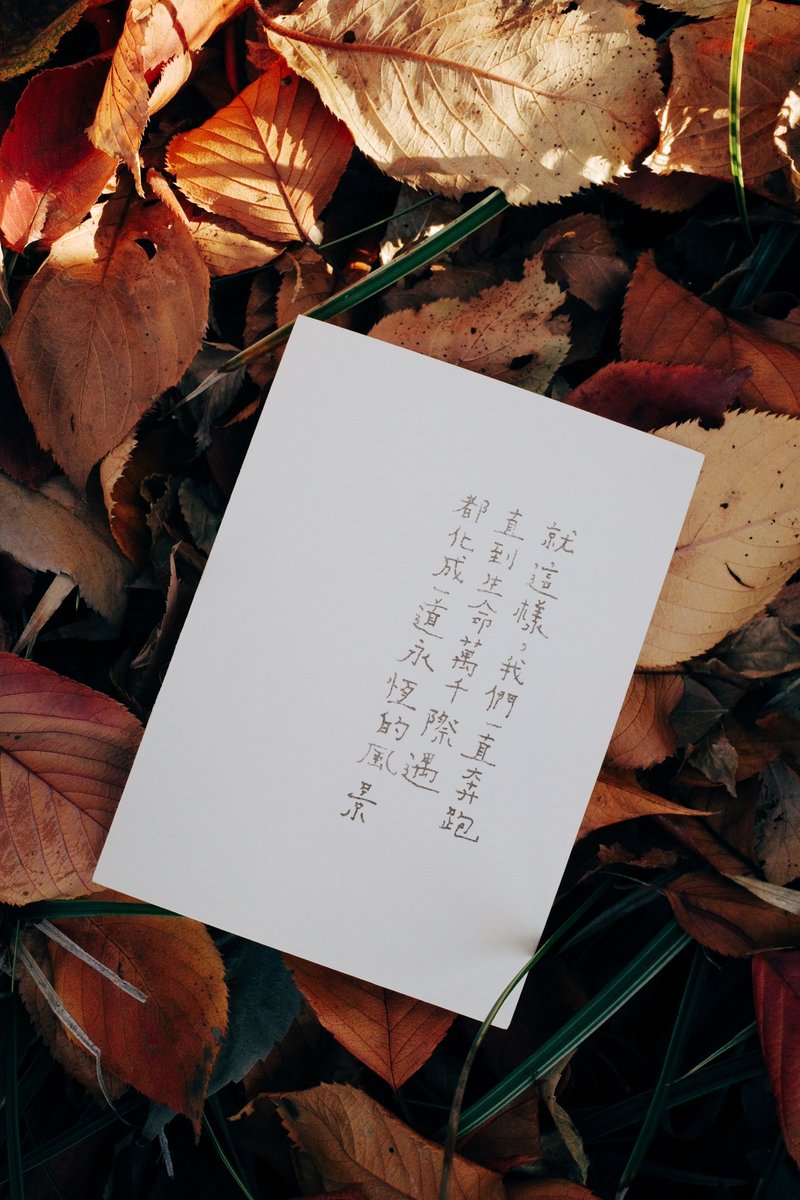 就這樣，我們一直奔跑
直到生命萬千際遇
都化成一道永恆的風景